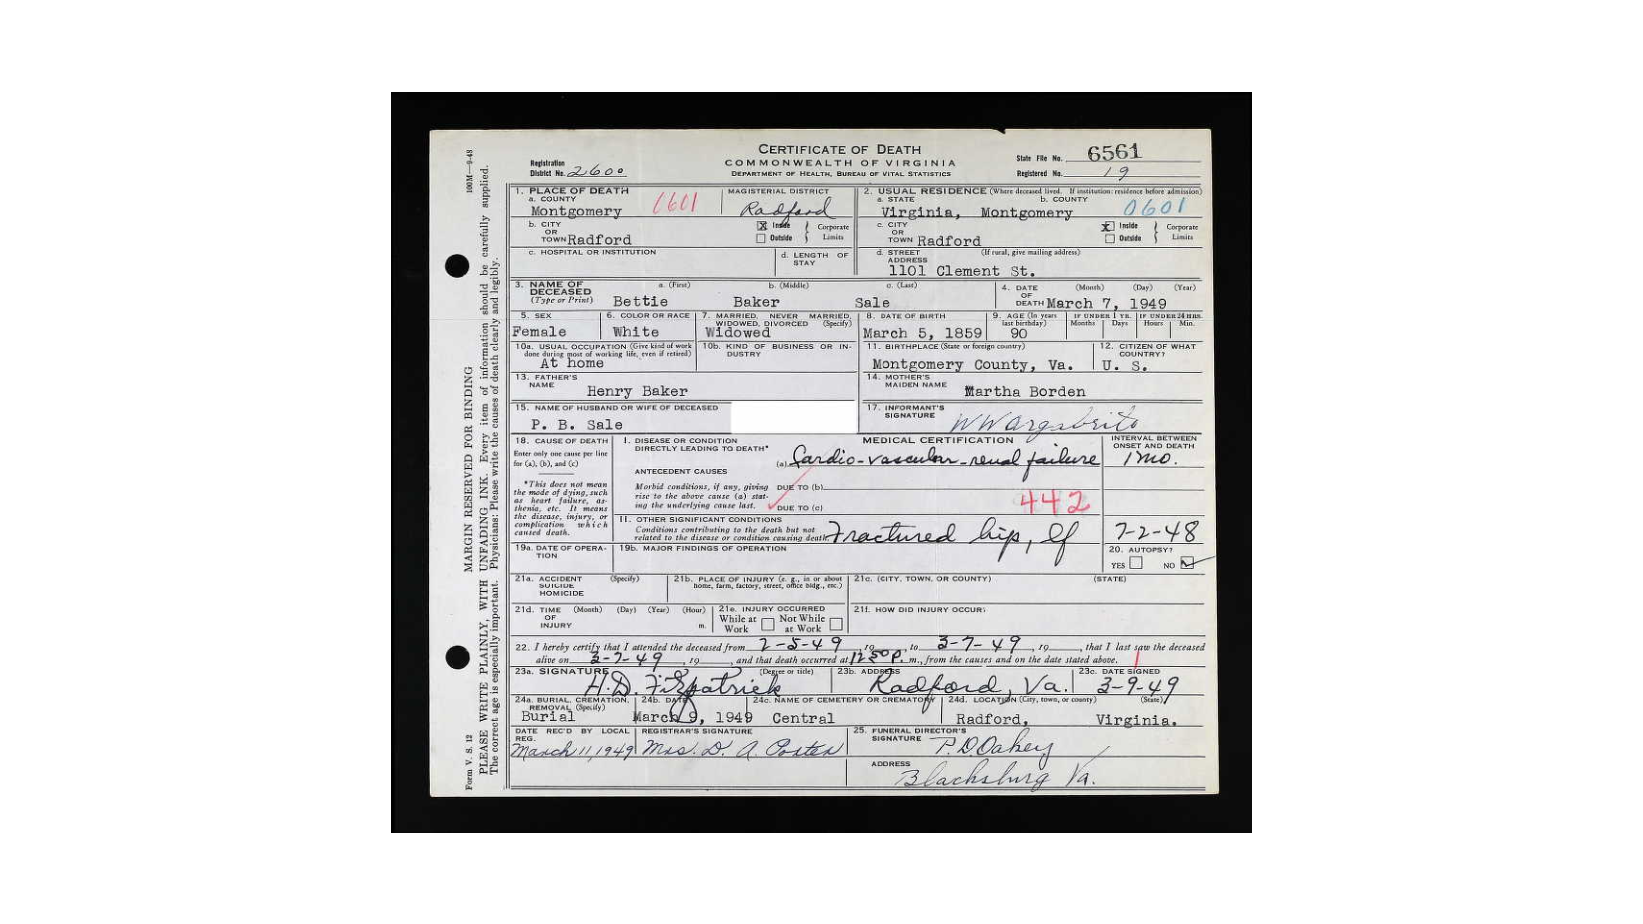 CERTIFICATE OF DEATH
COMMONWEALTH OF VIRGINIA
DEPARTMENT OF HEALTH, BUREAU OF VITAL STATISTICS
Registration District No. 2600
State File No. 6561
Registered No. 19
100M—9-48
MARGIN RESERVED FOR BINDING
PLEASE WRITE PLAINLY, WITH UNFADING INK. Every item of information should be carefully supplied.
The correct age is especially important. Physicians: Please write the causes of death clearly and legibly.
Form V. S. 12
1. PLACE OF DEATH
a. COUNTY
Montgomery
MAGISTERIAL DISTRICT
Radford
2. USUAL RESIDENCE (Where deceased lived. If institution: residence before admission)
a. STATE b. COUNTY
Virginia, Montgomery 0601
b. CITY OR TOWN Radford
X Inside Outside Corporate Limits
c. CITY OR TOWN Radford
X Inside Outside Corporate Limits
c. HOSPITAL OR INSTITUTION
d. LENGTH OF STAY
d. STREET ADDRESS (If rural, give mailing address)
1101 Clement St.
3. NAME OF DECEASED (Type or Print)
a. (First) b. (Middle) c. (Last)
Bettie Baker Sale
4. DATE OF DEATH (Month) (Day) (Year)
March 7, 1949
5. SEX
Female
6. COLOR OR RACE
White
7. MARRIED, NEVER MARRIED, WIDOWED, DIVORCED (Specify)
Widowed
8. DATE OF BIRTH
March 5, 1859
9. AGE (In years last birthday)
90
IF UNDER 1 YR. Months Days
IF UNDER 24 HRS. Hours Min.
10a. USUAL OCCUPATION (Give kind of work done during most of working life, even if retired)
At home
10b. KIND OF BUSINESS OR INDUSTRY
11. BIRTHPLACE (State or foreign country)
Montgomery County, Va.
12. CITIZEN OF WHAT COUNTRY?
U. S.
13. FATHER'S NAME
Henry Baker
14. MOTHER'S MAIDEN NAME
Martha Borden
15. NAME OF HUSBAND OR WIFE OF DECEASED
P. B. Sale
17. INFORMANT'S SIGNATURE
W W Argabrite
18. CAUSE OF DEATH
Enter only one cause per line for (a), (b), and (c)
*This does not mean the mode of dying, such as heart failure, asthenia, etc. It means the disease, injury, or complication which caused death.
MEDICAL CERTIFICATION
INTERVAL BETWEEN ONSET AND DEATH
I. DISEASE OR CONDITION DIRECTLY LEADING TO DEATH*
(a) Cardio-vascular-renal failure 1 mo.
ANTECEDENT CAUSES
Morbid conditions, if any, giving rise to the above cause (a) stating the underlying cause last.
DUE TO (b)
DUE TO (c)
442
II. OTHER SIGNIFICANT CONDITIONS
Conditions contributing to the death but not related to the disease or condition causing death.
Fractured hip, lf
19a. DATE OF OPERATION
19b. MAJOR FINDINGS OF OPERATION
20. AUTOPSY?
YES NO
21a. ACCIDENT SUICIDE HOMICIDE (Specify)
21b. PLACE OF INJURY (e. g., in or about home, farm, factory, street, office bldg., etc.)
21c. (CITY, TOWN, OR COUNTY) (STATE)
21d. TIME OF INJURY (Month) (Day) (Year) (Hour) m.
21e. INJURY OCCURRED
While at Work Not While at Work
21f. HOW DID INJURY OCCUR?
22. I hereby certify that I attended the deceased from 2-5-49, 19 , to 3-7-49, 19 , that I last saw the deceased
alive on 3-7-49, 19 , and that death occurred at 12 50 P. m., from the causes and on the date stated above.
23a. SIGNATURE (Degree or title)
H.D. Fitzpatrick
23b. ADDRESS
Radford, Va.
23c. DATE SIGNED
3-9-49
24a. BURIAL, CREMATION, REMOVAL (Specify)
Burial
24b. DATE
March 9, 1949
24c. NAME OF CEMETERY OR CREMATORY
Central
24d. LOCATION (City, town, or county) (State)
Radford, Virginia.
DATE REC'D BY LOCAL REG.
March 11, 1949
REGISTRAR'S SIGNATURE
Mrs. D. A.
25. FUNERAL DIRECTOR'S SIGNATURE
P.D. Oakey
ADDRESS
Blacksburg Va.